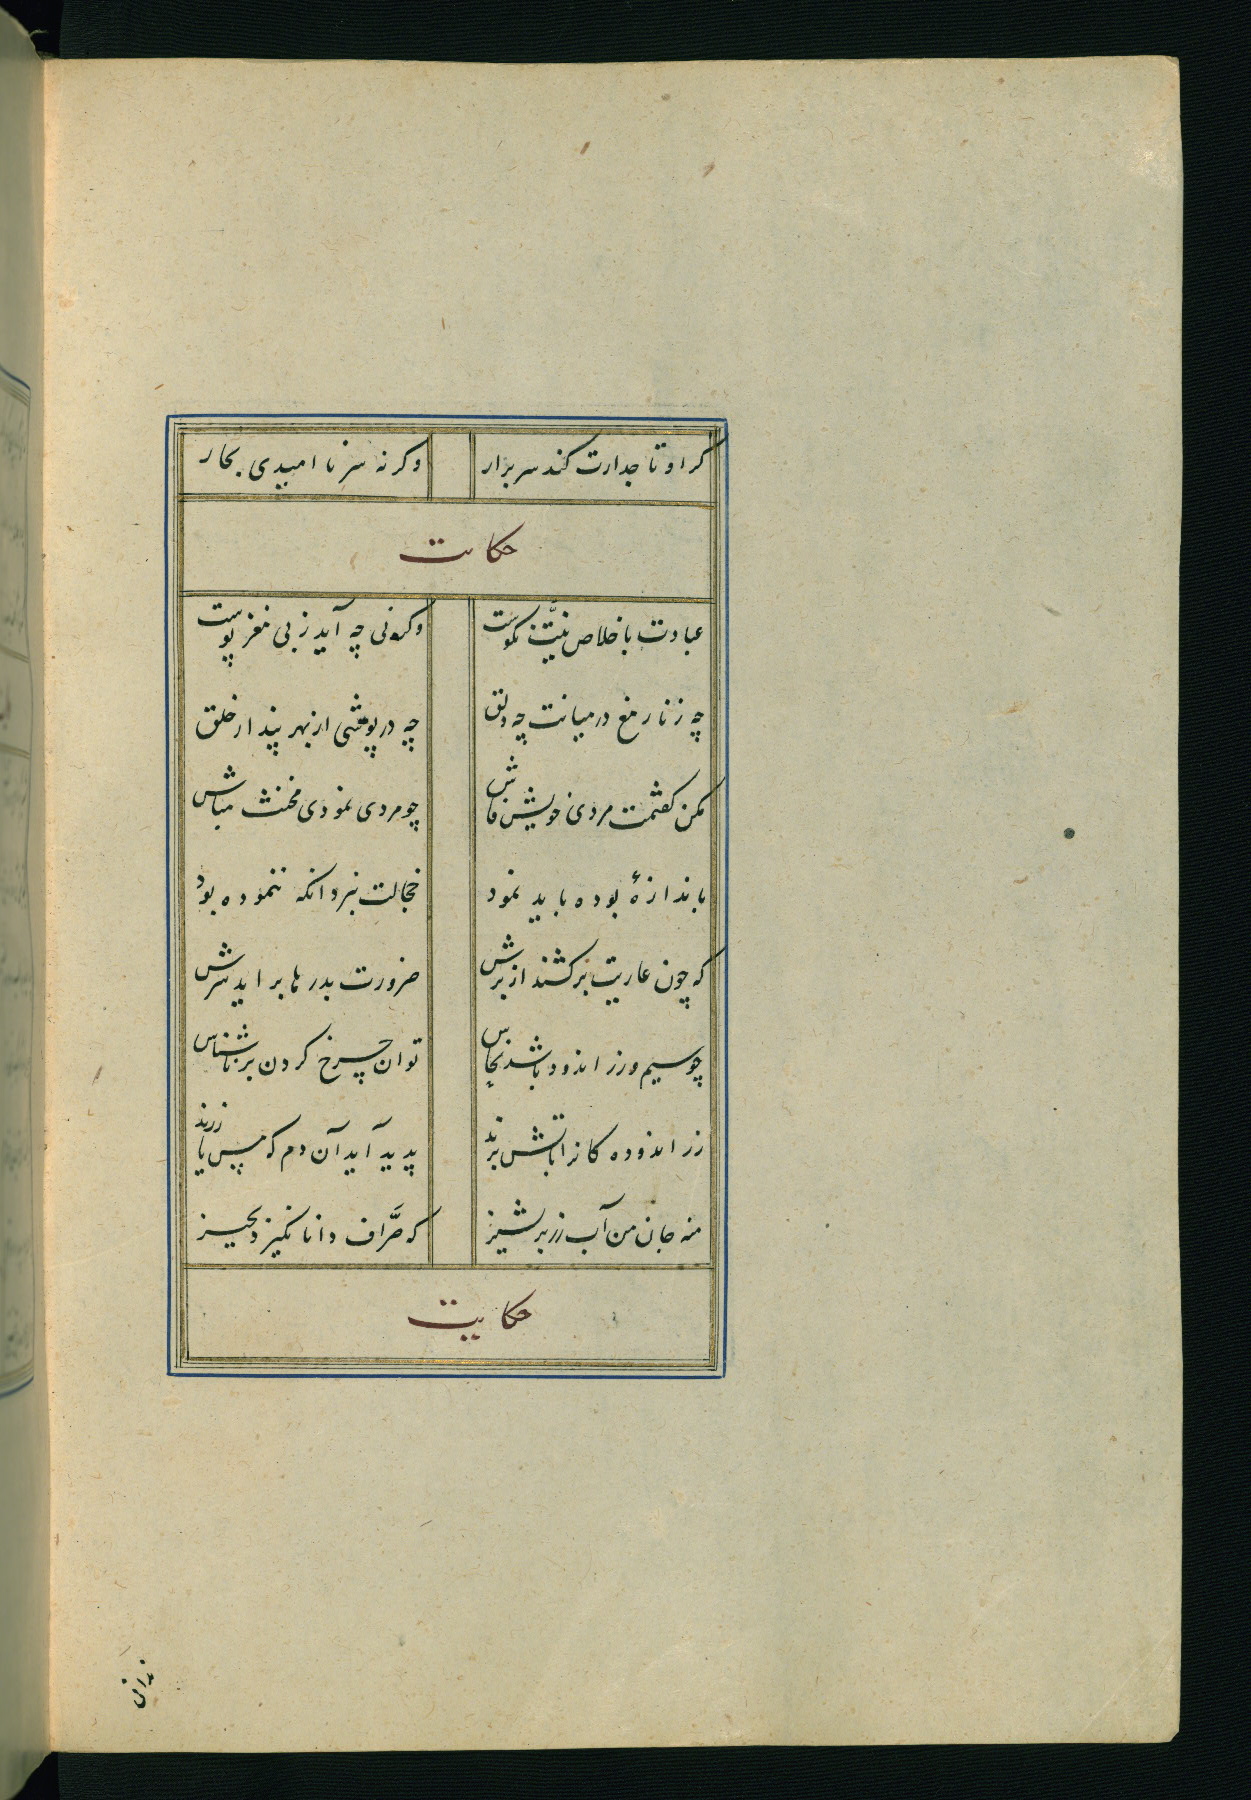 گر او تاجدارت کند سر برار وگر نه سر نا امیدی بخار
حکایت
عبادت باخلاص نیّت نکوست وگرنی چه آید ز بی مغز پوست
چه زنار مغ در میانت چه دلق چه درپوشی از بهر پندار خلق
مکن گفتمت مردی خویش فاش چو مردی نمودی مخنث مباش
باندازهٔ بوده باید نمود خجالت نبرد انکه ننموده بود
که چون عاریت برکشند از برش ضرورت بدرها براید سرش
چو سیم و زر اندود باشد نحاس توان خرج کردن بر ناشناس
زر اندوده کانرا باتش برند پدید آید آن دم که مس یا زرند
منه جان من آب زر بر پشیز که صرّاف دانا نگیرد بچیز
حکایت
ندانی